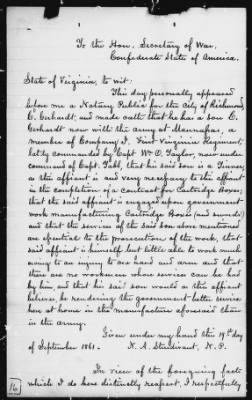 To the Hon. Secretary of War,
Confederate State of America.
State of Virginia, to wit:
This day personally appeared
before me a Notary Public for the City of Richmond,
C. Gerhardt, and made oath that he has a son C.
Gerhardt now with the army at Manassas, a
member of Company I. First Virginia Regiment,
lately commanded by Capt. Wm O. Taylor, now under
command of Capt. that his said son is a Tinner,
as this affiant is and very necessary to this affiant
in the completion of a contract for Cartridge Boxes;
that the said affiant is engaged upon government
work manufacturing Cartridge Boxes (and swords)
and that the services of the said son above mentioned
are essential to the prosecution of the work, that
said affiant is himself but little able to work much
owing to an injury to his hand and arm and that
there are no workmen whose services can be had
by him, and that his said son would as this affiant
believes, be rendering the government better service
here at home in the manufacture aforesaid than
in the army.
Given under my hand this 19th day
of September 1861. N. A. Sturdivant, N. P.
In view of the foregoing facts
which I do here distinctly reassert, I respectfully
16